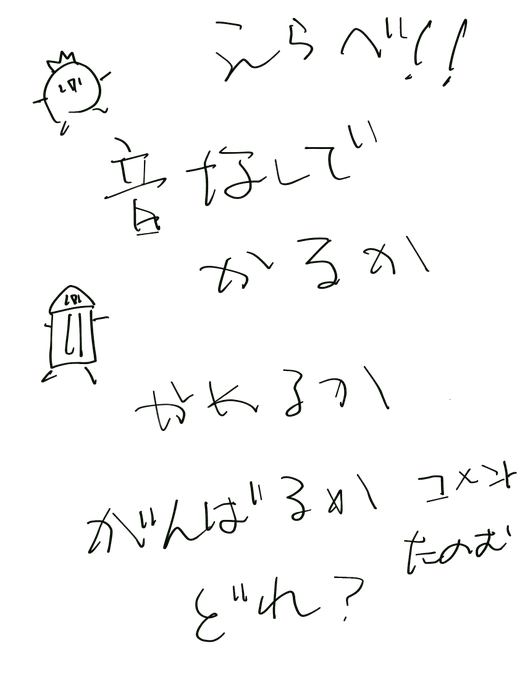 えらべ!!
音なしで
かるか
がれるか
がんばるか
コメント
たのむ
どれ?